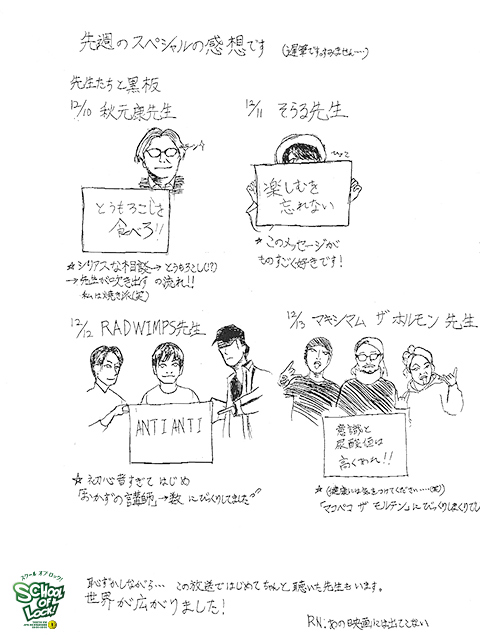 先週のスペシャルの感想です (遅筆ですみません…)
先生たちと黒板
12/10 秋元康先生
12/11 そらる先生
とうもろこしを
食べろ!!
楽しむを
忘れない
☆シリアスな相談→とうもろこし(!?)
→先生が吹き出すの流れ!!
私は焼き派(笑)
☆このメッセージが
ものすごく好きです!
12/12 RADWIMPS先生
12/13 マキシマム ザ ホルモン 先生
ANTI ANTI
意識と
尿酸値は
高くあれ!!
☆初心者すぎてはじめ
「おかずの講師」→数にびっくりしました
☆(健康には気をつけてください…(笑))
「マコペコ ザ モルテン」にびっくりしまくりでし
スクール オブ ロック!
SCHOOL OF LOCK!
恥ずかしながら… この放送ではじめてちゃんと聴いた先生もいます。
世界が広がりました!
RN.あの映画には出てこない